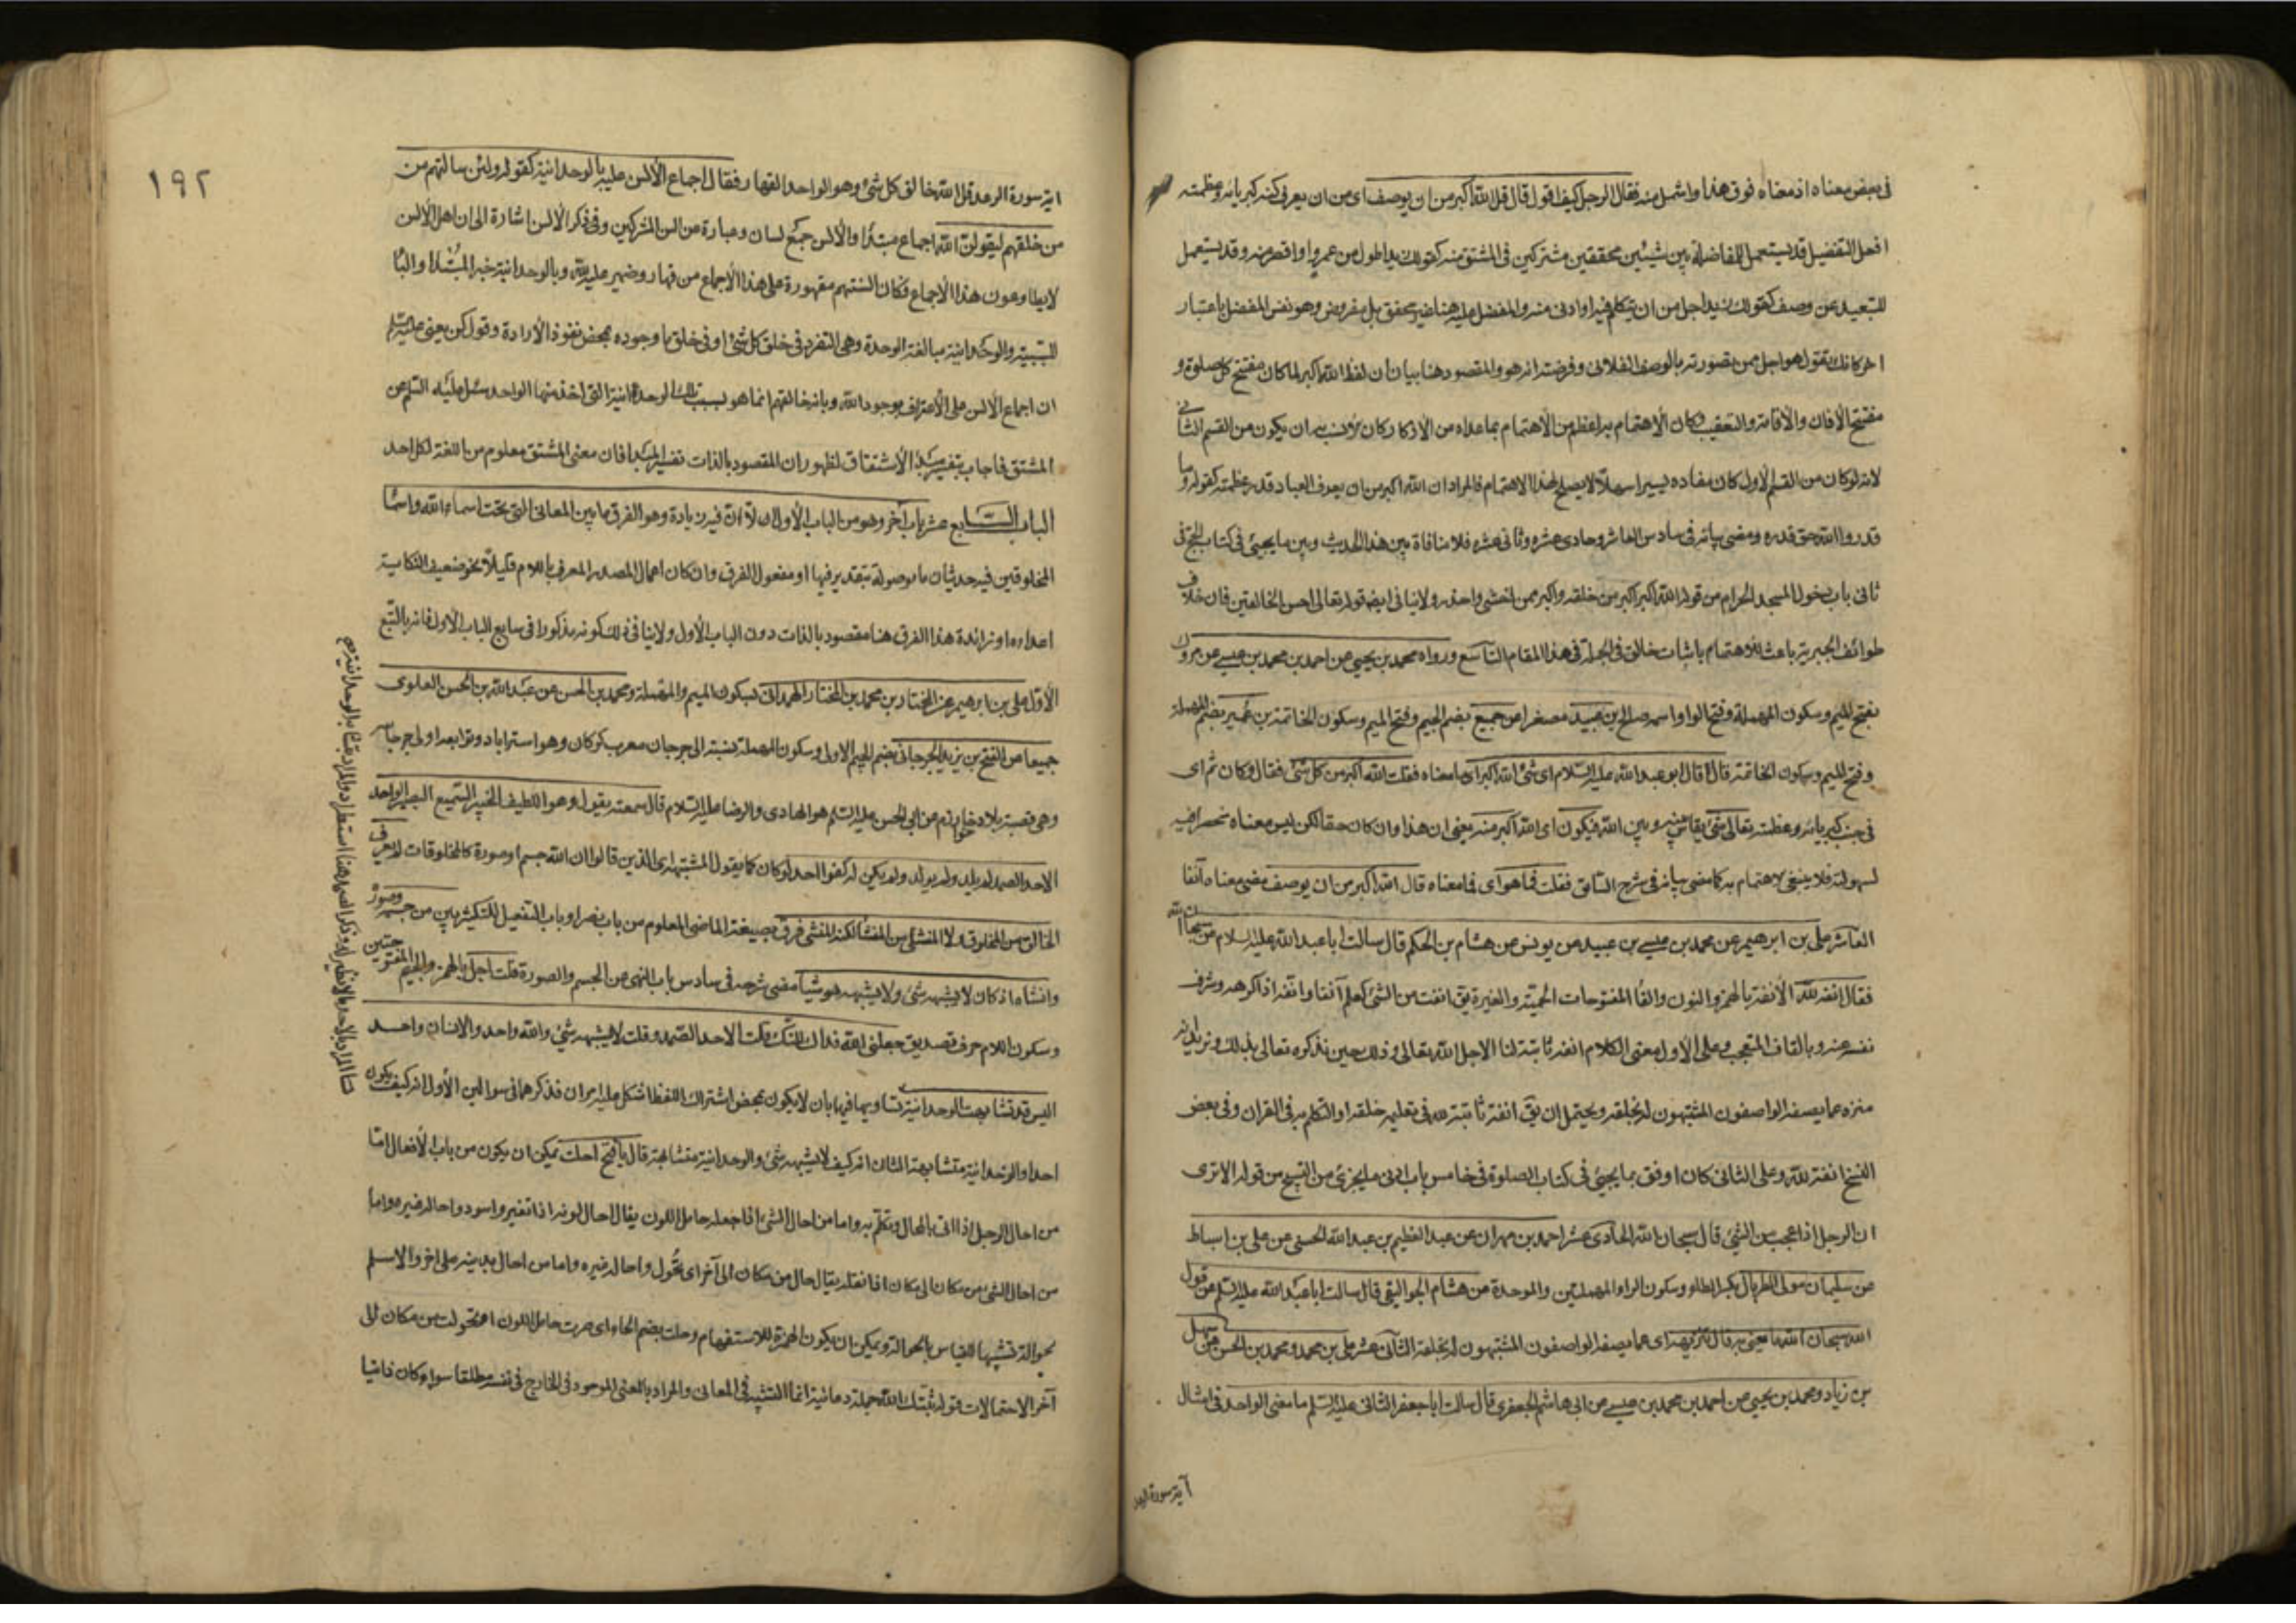 فى بعض معناه اذ معناه فوق هذا واشمل منه فقال الرجل كيف اقول قال قل الله اكبر من ان يوصف اى من ان يعرف كنه كبريائه وعظمته
افعل التفضيل قد يستعمل للمفاضلة بين شيئين محققين مشتركين فى المشتق منه كقولك زيد اطول من عمرو او اقصر منه وقد يستعمل
للتبعيد عن وصف كقولك زيد اجل من ان يتكلم فيه او ادنى منه والمفضل عليه هنا غير محقق بل مفروض وهو نفس المفضل باعتبار
اخر كانك تقول هو اجل ممن تصورته بالوصف الفلانى وفرضته انه هو والمقصود هنا بيان ان لفظ الله اكبر لما كان مفتتح كل صلوة و
مفتتح الاذان والاقامة والتعقيب وكان الاهتمام به اعظم من الاهتمام بما عداه من الاذكار كان الانسب به ان يكون من القسم الثانى
لانه لو كان من القسم الاول كان مفاده يسيرا سهلا لا يصلح لهذا الاهتمام فالمراد ان الله اكبر من ان يعرف العباد قدر عظمته كقوله وما
قدروا الله حق قدره ومضى بيانه فى سادس العاشر وحادى عشره وثانى عشره فلا منافاة بين هذا الحديث وبين ما يجيئ فى كتاب الحج فى
ثانى باب دخول المسجد الحرام من قوله الله اكبر اكبر من خلقه واكبر ممن اخشى واحذر ولا ينافى ايضا قوله تعالى احسن الخالقين فان خلاف
طوائف الجبرية باعث للاهتمام باثبات خالق فى الجملة فى هذا المقام التاسع ورواه محمد بن يحيى عن احمد بن محمد بن عيسى عن مروك
بفتح الميم وسكون المهملة وفتح الواو اسمه صالح بن عبيد مصغرا عن جميع بضم الجيم وفتح الميم وسكون الخاتمة بن عمير بضم المهملة
وفتح الميم وسكون الخاتمة قال قال ابو عبد الله عليه السلام اى شئ الله اكبر اى ما معناه فقلت الله اكبر من كل شئ فقال وكان ثم اى
فى جنب كبريائه وعظمته تعالى شئ يقاس بينه وبين الله فيكون اى الله اكبر منه يعنى ان هذا وان كان حقا لكن ليس معناه منحصرا فيه
لسهولته فلا ينبغى لاهتمام به كما مضى بيانه فى شرح السابق فقلت فما هو اى فما معناه قال الله اكبر من ان يوصف مضى معناه آنفا
العاشر على بن ابرهيم عن محمد بن عيسى بن عبيد عن يونس عن هشام بن الحكم قال سالت ابا عبد الله عليه السلام عن سبحان الله
فقال انفة لله الانفة بالهمز والنون والفا المفتوحات الحمية والغيرة يق انفت من الشئ كعلم آنفا وانفة اذا كرهه وشرف
نفسه عنه وبالقاف المتعجب وعلى الاول معنى الكلام انفة ثابتة لنا لاجل الله تعالى وذلك حين نذكره تعالى بذلك ونريد انه
منزه عما يصفه الواصفون المشبهون له بخلقه ويحتمل ان يق انفة ثابتة لله فى تعليم خلقه او التكلم به فى القران وفى بعض
النسخ انفة لله وعلى الثانى كان اوفق بما يجيئ فى كتاب الصلوة فى خامس باب ادنى ما يجزئ من التسبيح من قوله الا ترى
ان الرجل اذا عجب من الشئ قال سبحان الله الحادى عشر احمد بن مهران عن عبد العظيم بن عبد الله الحسنى عن على بن اسباط
عن سليمان مولى الطربال بكسر الطاء وسكون الراء المهملتين والموحدة عن هشام الجواليقى قال سالت ابا عبد الله عليه السلم عن قول
الله سبحان الله ما يعنى به قال تنزيهه اى عما يصفه الواصفون المشبهون له بخلقه الثانى عشر على بن محمد ومحمد بن الحسن عن سهل
بن زياد ومحمد بن يحيى عن احمد بن محمد بن عيسى عن ابى هاشم الجعفرى قال سالت ابا جعفر الثانى عليه السلم ما معنى الواحد فى امثال
آية سورة الرعد
١٩٢
اية سورة الرعد قل الله خالق كل شئ وهو الواحد القهار فقال اجماع الالسن عليه بالوحدانية كقوله ولئن سالتهم من
من خلقهم ليقولن الله اجماع مبتدأ والالسن جمع لسان وعبارة عن السن المشركين وفى ذكر الالسن اشارة الى ان اهل الالسن
لا يطاوعون هذا الاجماع فكان السنتهم مقهورة على هذا الاجماع من قهار وضمير عليه لله وبالوحدانية خبر المبتدا والبا
للسببية والوحدانية مبالغة الوحدة وهى التفرد فى خلق كل شئ او فى خلق ما وجوده بمحض نفوذ الارادة وقول كن يعنى عليه السلم
ان اجماع الالسن على الاعتراف بوجود الله وبانه خالقهم انما هو بسبب تلك الوحدانية التى اخذ منها الواحد سئل عليه السلم عن
المشتق فاجاب بتفسير مبدأ الاشتقاق لظهور ان المقصود بالذات تفسير المبدأ فان معنى المشتق معلوم من اللغة لكل احد
الباب السابع عشر باب آخر وهو من الباب الاول الا ان فيه زيادة وهو الفرق ما بين المعانى التى تحت اسماء الله واسما
المخلوقين فيه حديثان ما موصولة بتقدير فيها او مفعول الفرق وان كان اعمال المصدر المعرف باللام قليلا نحو ضعيف النكاية
اعداءه او زائدة هذا الفرق هنا مقصود بالذات دون الباب الاول ولا ينافى ذلك كونه مذكورا فى سابع الباب الاول فانه بالتبع
الاول على بن ابرهيم عن المختار بن محمد بن المختار الهمدانى بسكون الميم والمهملة ومحمد بن الحسن عن عبد الله بن الحسن العلوى
جميعا عن الفتح بن يزيد الجرجانى بضم الجيم الاولى وسكون المهملة نسبته الى جرجان معرب كركان وهو استراباد وتوابعه او الى جرجا
وهى قصبة بلاد خوارزم عن ابى الحسن عليه السلم هو الهادى والرضا عليه السلام قال سمعته يقول وهو اللطيف الخبير السميع البصير الواحد
الاحد الصمد لم يلد ولم يولد ولم يكن له كفوا احد لو كان كما يقول المشبهة اى الذين قالوا ان الله جسم او صورة كالمخلوقات لم يعرف
الخالق من المخلوق ولا المنشئ من المنشأ لكنه المنشئ فرق بصيغة الماضى المعلوم من باب نصر او باب التفعيل للتكثير بين من جسمه وصوره
وانشاه اذ كان لا يشبهه شئ ولا يشبه هو شيا مضى شرحه فى سادس باب النهى عن الجسم والصورة قلت اجل بالهمز والجيم المفتوحتين
وسكون اللام حرف تصديق جعلنى الله فداك لكنك قلت الاحد الصمد وقلت لا يشبهه شئ والله واحد والانسان واحد
اليس قد تشابهت الوحدانية تساويهما فيها بان لا يكون بمحض اشتراك اللفظ اشكل عليه امران فذكرهما فى سوالين الاول انه كيف يكون
احدا والوحدانية متشابهة الثانى انه كيف لا يشبهه شئ والوحدانية متشابهة قال يا فتح احلت يمكن ان يكون من باب الافعال اما
من احال الرجل اذا اتى بالمحال وتكلم به واما من احال الشئ اذا جعله حامل اللون يقال احال لونه اذا تغير واسود واحاله غيره واما
من احال الشئ من مكان الى مكان اذا نقله يقال حال من مكان الى آخر اى تحول واحاله غيره واما من احال بدينه على اخر والاسم
الحوالة تشبيها للقياس بالحوالة ويمكن ان يكون الهمزة للاستفهام وحلت بضم الحاء اى صرت حامل اللون او تحولت من مكان الى
آخر الاحتمالات قوله ثبتك الله جملة دعائية انما التشبيه فى المعانى والمراد بالمعنى الموجود فى الخارج فى نفسه مطلقا سواء كان ذاتيا